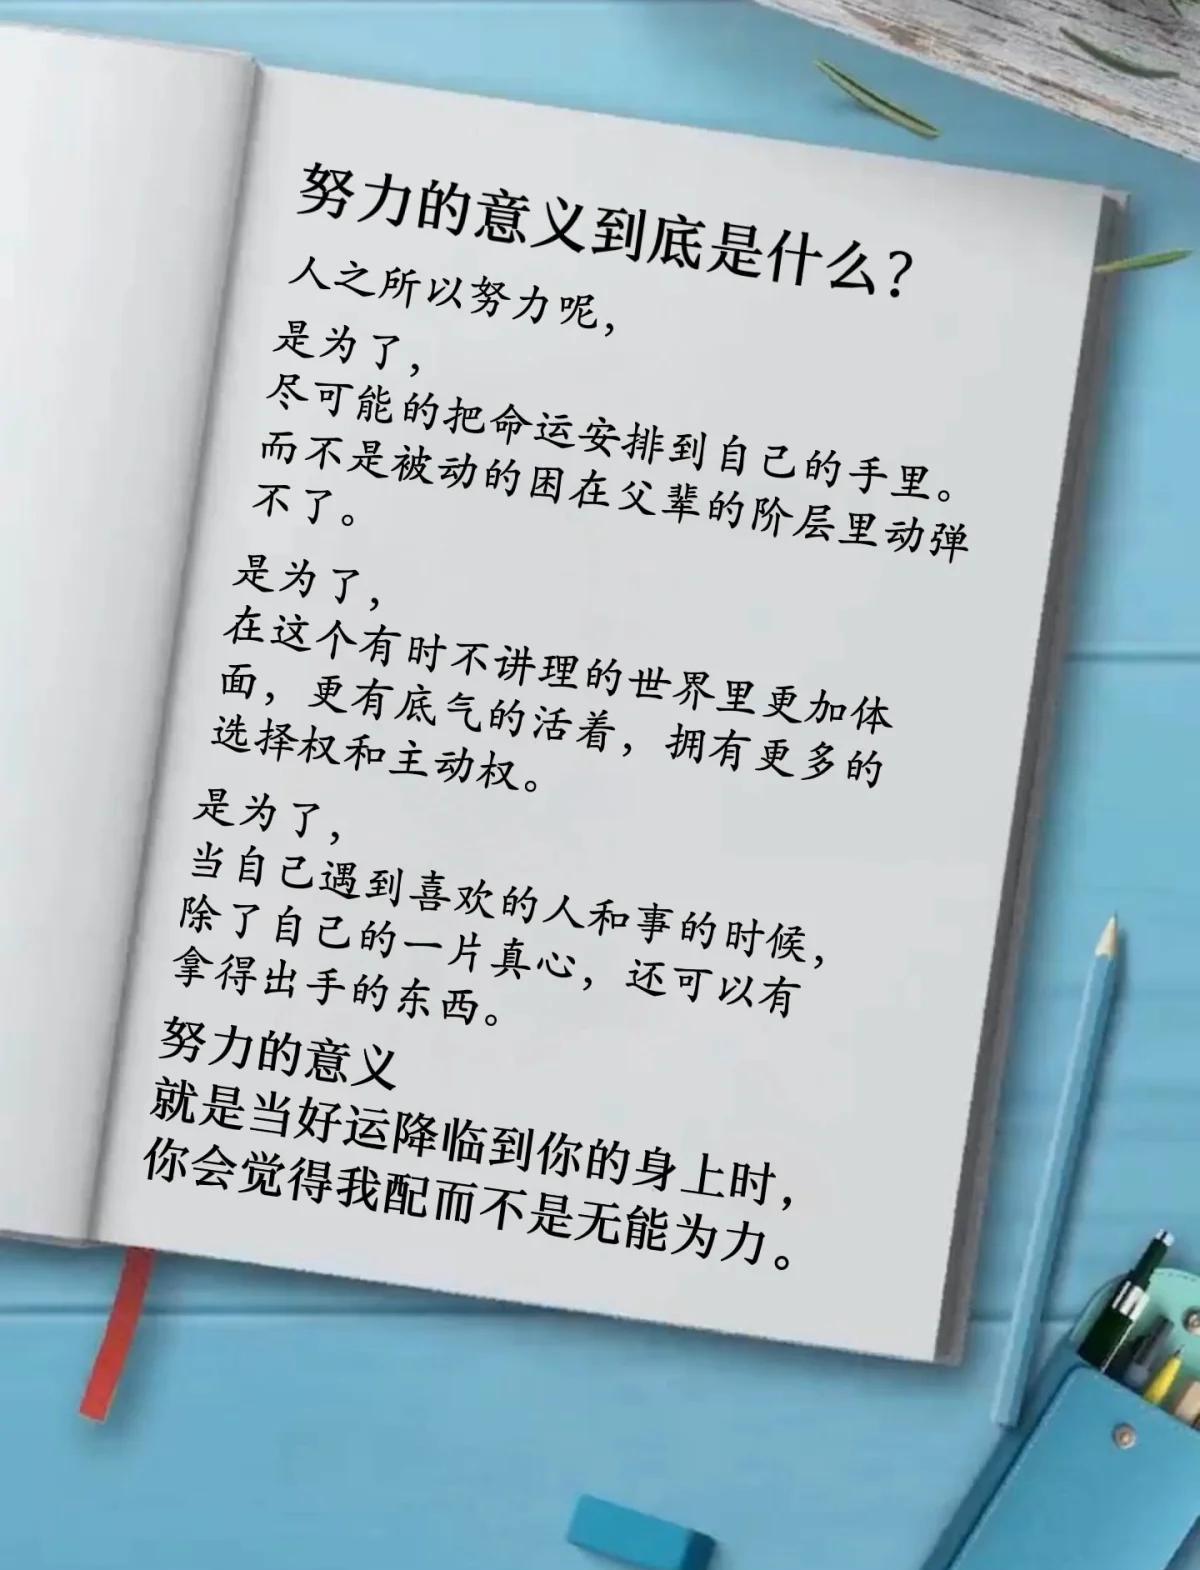 努力的意义到底是什么?
人之所以努力呢,
是为了,
尽可能的把命运安排到自己的手里。
而不是被动的困在父辈的阶层里动弹
不了。
是为了,
在这个有时不讲理的世界里更加体
面，更有底气的活着，拥有更多的
选择权和主动权。
是为了,
当自己遇到喜欢的人和事的时候,
除了自己的一片真心，还可以有
拿得出手的东西。
努力的意义
就是当好运降临到你的身上时,
你会觉得我配而不是无能为力。